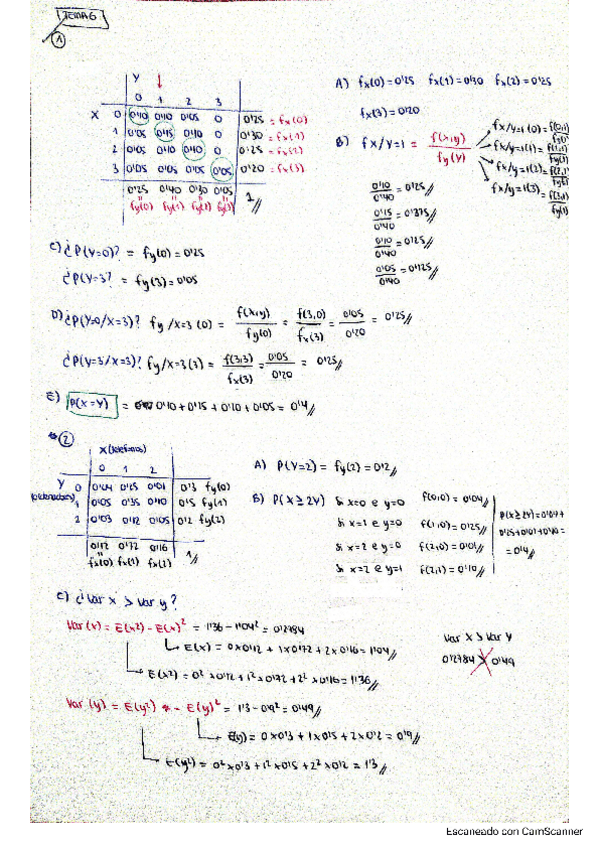 TEMA 6
①
Y ↓
0 1 2 3
X 0 0'10 0'10 0'05 0 0'25 = fx(0)
1 0'05 0'15 0'10 0 0'30 = fx(1)
2 0'05 0'10 0'10 0 0'25 = fx(2)
3 0'05 0'05 0'05 0'05 0'20 = fx(3)
0'25 0'40 0'30 0'05 1//
fy(0) fy(1) fy(2) fy(3)
A) fx(0) = 0'25 fx(1) = 0'30 fx(2) = 0'25
fx(3) = 0'20
B) fx/y=1 = f(x,y)/fy(y)
fx/y=1(0) = f(0,1)/fy(1)
fx/y=1(1) = f(1,1)/fy(1)
fx/y=1(2) = f(2,1)/fy(1)
fx/y=1(3) = f(3,1)/fy(1)
0'10/0'40 = 0'25//
0'15/0'40 = 0'375//
0'10/0'40 = 0'25//
0'05/0'40 = 0'125//
C) ¿P(Y=0)? = fy(0) = 0'25
¿P(Y=3? = fy(3) = 0'05
D) ¿P(Y=0/X=3)? fy/x=3 (0) = f(x,y)/fy(0) = f(3,0)/fx(3) = 0'05/0'20 = 0'25//
¿P(Y=3/X=3)? fy/x=3(3) = f(3,3)/fx(3) = 0'05/0'20 = 0'25//
E) P(X=Y) = 0'10 + 0'15 + 0'10 + 0'05 = 0'4//
②
X (telefonos)
0 1 2
Y 0 0'04 0'25 0'01 0'3 fy(0)
(ordenadores) 1 0'05 0'35 0'10 0'5 fy(1)
2 0'03 0'12 0'05 0'2 fy(2)
0'12 0'72 0'16 1//
fx(0) fx(1) fx(2)
A) P(Y=2) = fy(2) = 0'2//
B) P(X ≥ 2Y) Si x=0 e y=0 f(0,0) = 0'04
Si x=1 e y=0 f(1,0) = 0'25
Si x=2 e y=0 f(2,0) = 0'01
Si x=2 e y=1 f(2,1) = 0'10
P(X≥2Y) = 0'04 +
0'25 + 0'01 + 0'10 =
= 0'4//
C) ¿Var x > Var y?
Var (x) = E(x²) - E(x)² = 1'36 - 1'04² = 0'2784
E(x) = 0 x 0'12 + 1 x 0'72 + 2 x 0'16 = 1'04//
E(x²) = 0² x 0'12 + 1² x 0'72 + 2² x 0'16 = 1'36//
Var (y) = E(y²) - E(y)² = 1'3 - 0'9² = 0'49//
E(y) = 0 x 0'3 + 1 x 0'5 + 2 x 0'2 = 0'9//
E(y²) = 0² x 0'3 + 1² x 0'5 + 2² x 0'2 = 1'3//
Var x > Var y
0'2784 > 0'49
Escaneado con CamScanner